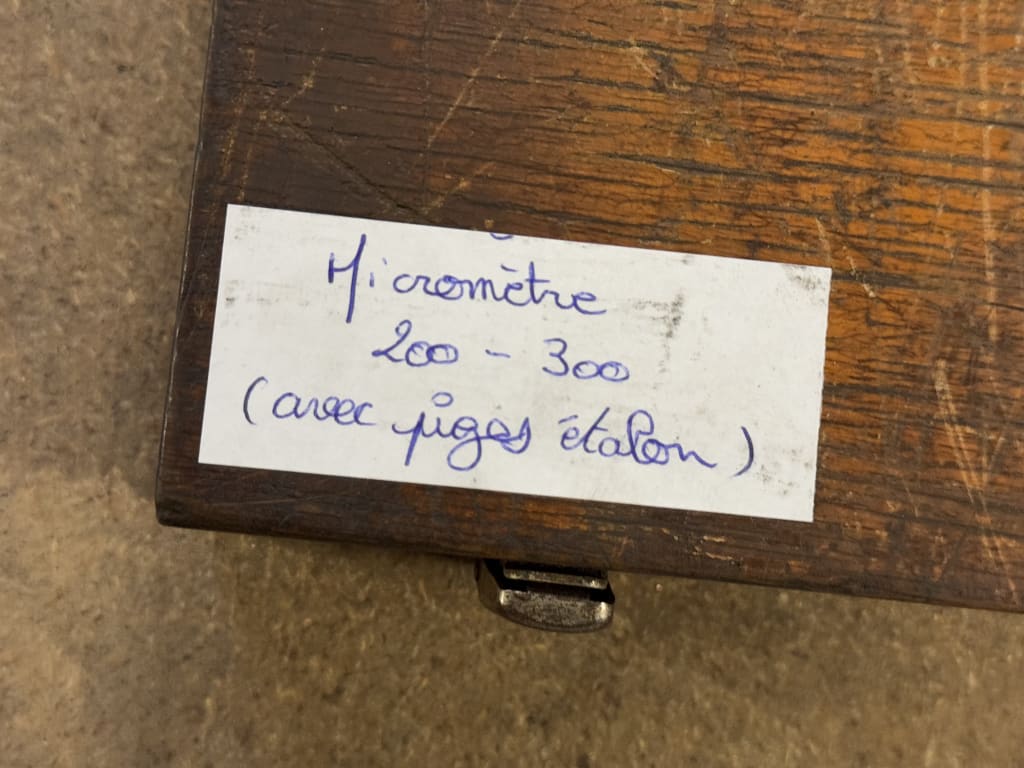 Micromètre
200 - 300
(avec piges étalon)